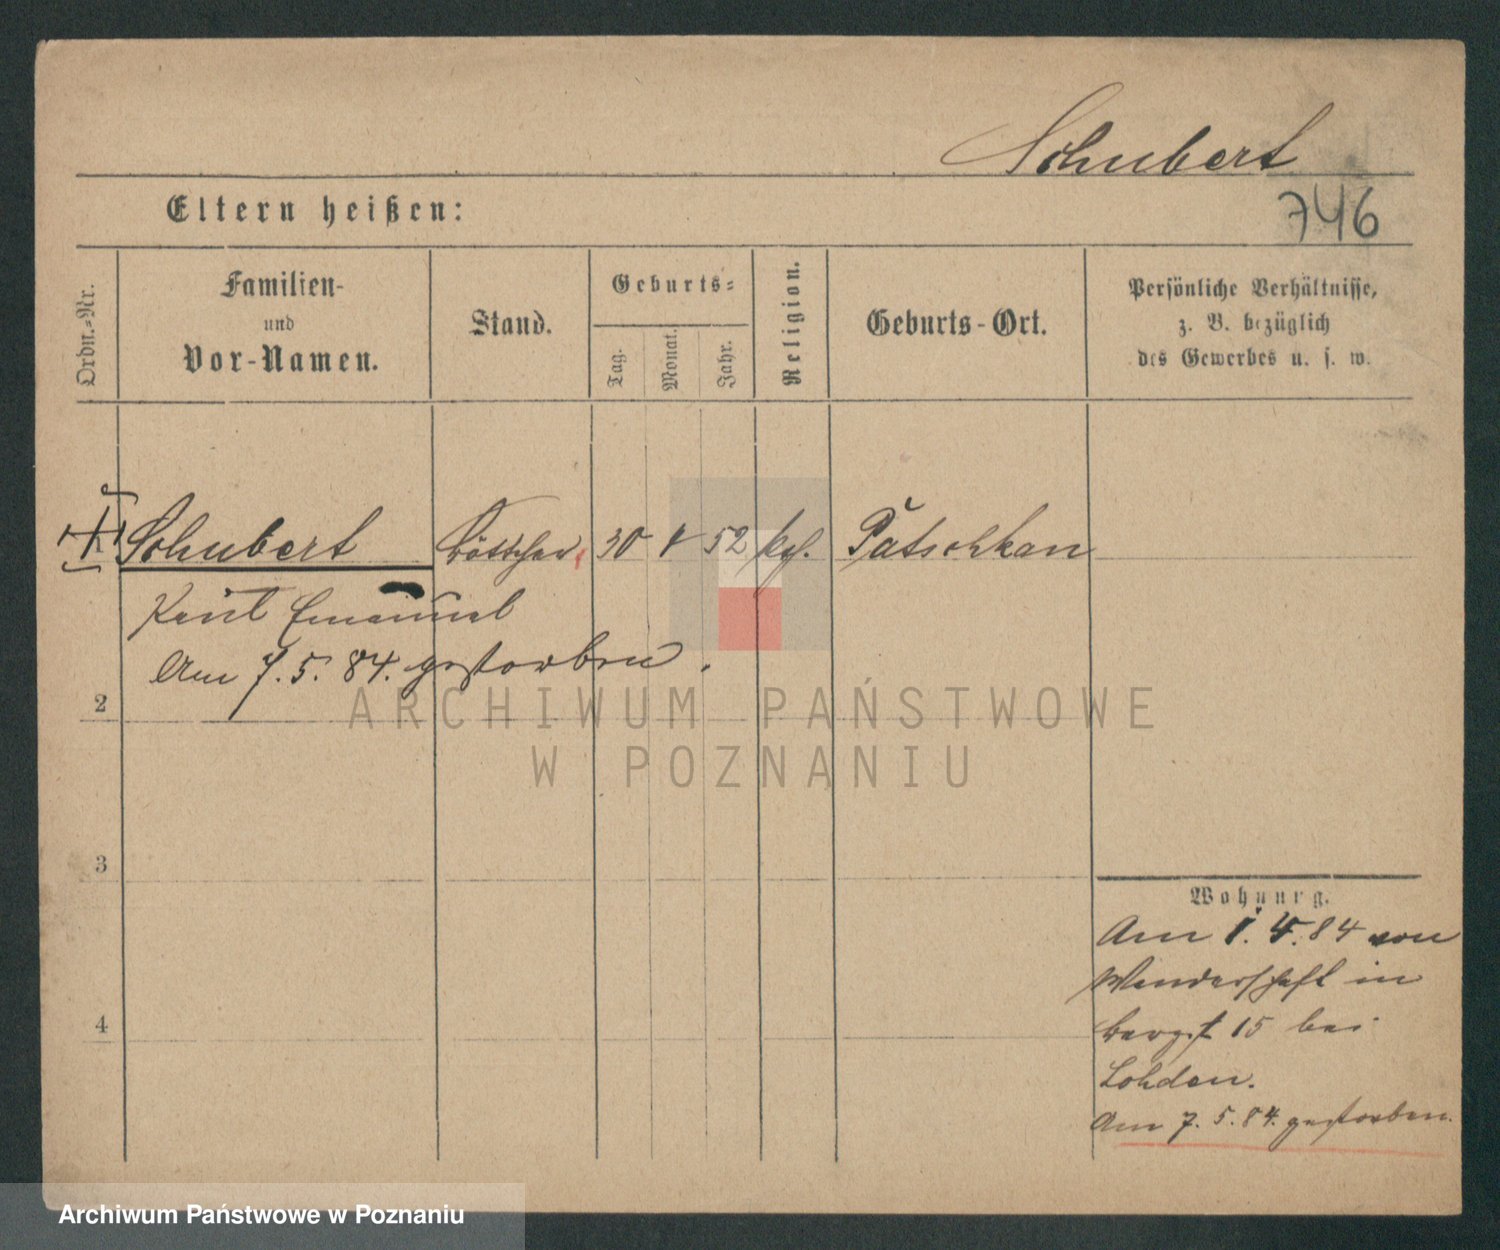 Schubert
746
Eltern heißen:
Ordn.-Nr.
Familien-
und
Vor-Namen.
Stand.
Geburts-
Tag.
Monat.
Jahr.
Religion.
Geburts-Ort.
Persönliche Verhältnisse,
z. B. bezüglich
des Gewerbes u. s. w.
Schubert Böttcher 30 52 Patschkau
Emanuel
Am 7.5.84. gestorben.
2
3
4
Wohnung.
Am 1.4.84 von
Wanderschaft in
Bergst 15 bei
Lohden.
Am 7.5.84. gestorben.
ARCHIWUM PAŃSTWOWE
W POZNANIU
Archiwum Państwowe w Poznaniu